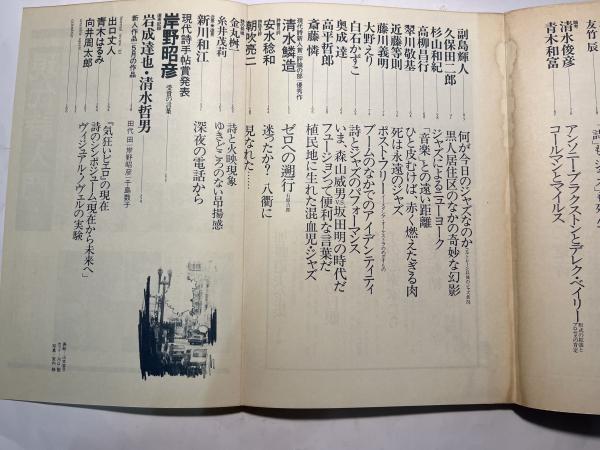 友竹辰
詩」も「ジャズ」も
対談
清水俊彦
青木和富
アンソニー・ブラクストンとデレク・ベイリー
形式の拡張と
コールマンとマイルス
副島輝人
何が今日のジャズなのか
久保田二郎
黒人居住区のなかの奇妙な幻影
杉山和紀
ジャズによるニューヨーク
高柳昌行
「音楽」との遠い距離
翠川敬基
ひと皮むけば、赤く燃えたぎる肉
近藤等則
死は永遠のジャズ
藤川義明
ポスト・フリー
大野えり
ブームのなかでのアイデンティティ
白石かずこ
詩とジャズのパフォーマンス
奥成達
いま、森山威男vs坂田明の時代だ
高平哲郎
フュージョンて便利な言葉だ
斎藤憐
植民地に生れた混血児・ジャズ
現代詩新人賞〈評論の部〉優秀作
清水鱗造
ゼロへの遡行
安水稔和
迷ったか? 八衢に
朝吹亮二
見なれた……
金丸桝一
詩と火映現象
糸井茂莉
ゆきどころのない昂揚感
新川和江
深夜の電話から
現代詩手帖賞発表
岸野昭彦
受賞の言葉
岩成達也・清水哲男
新人作品 5月の作品
田代田 岸野昭彦 千島数子
出口丈人
『気狂いピエロ』の現在
青木はるみ
詩のシンポジューム「現在から未来へ」
向井周太郎
ヴィジュアル・ノヴェルの実験